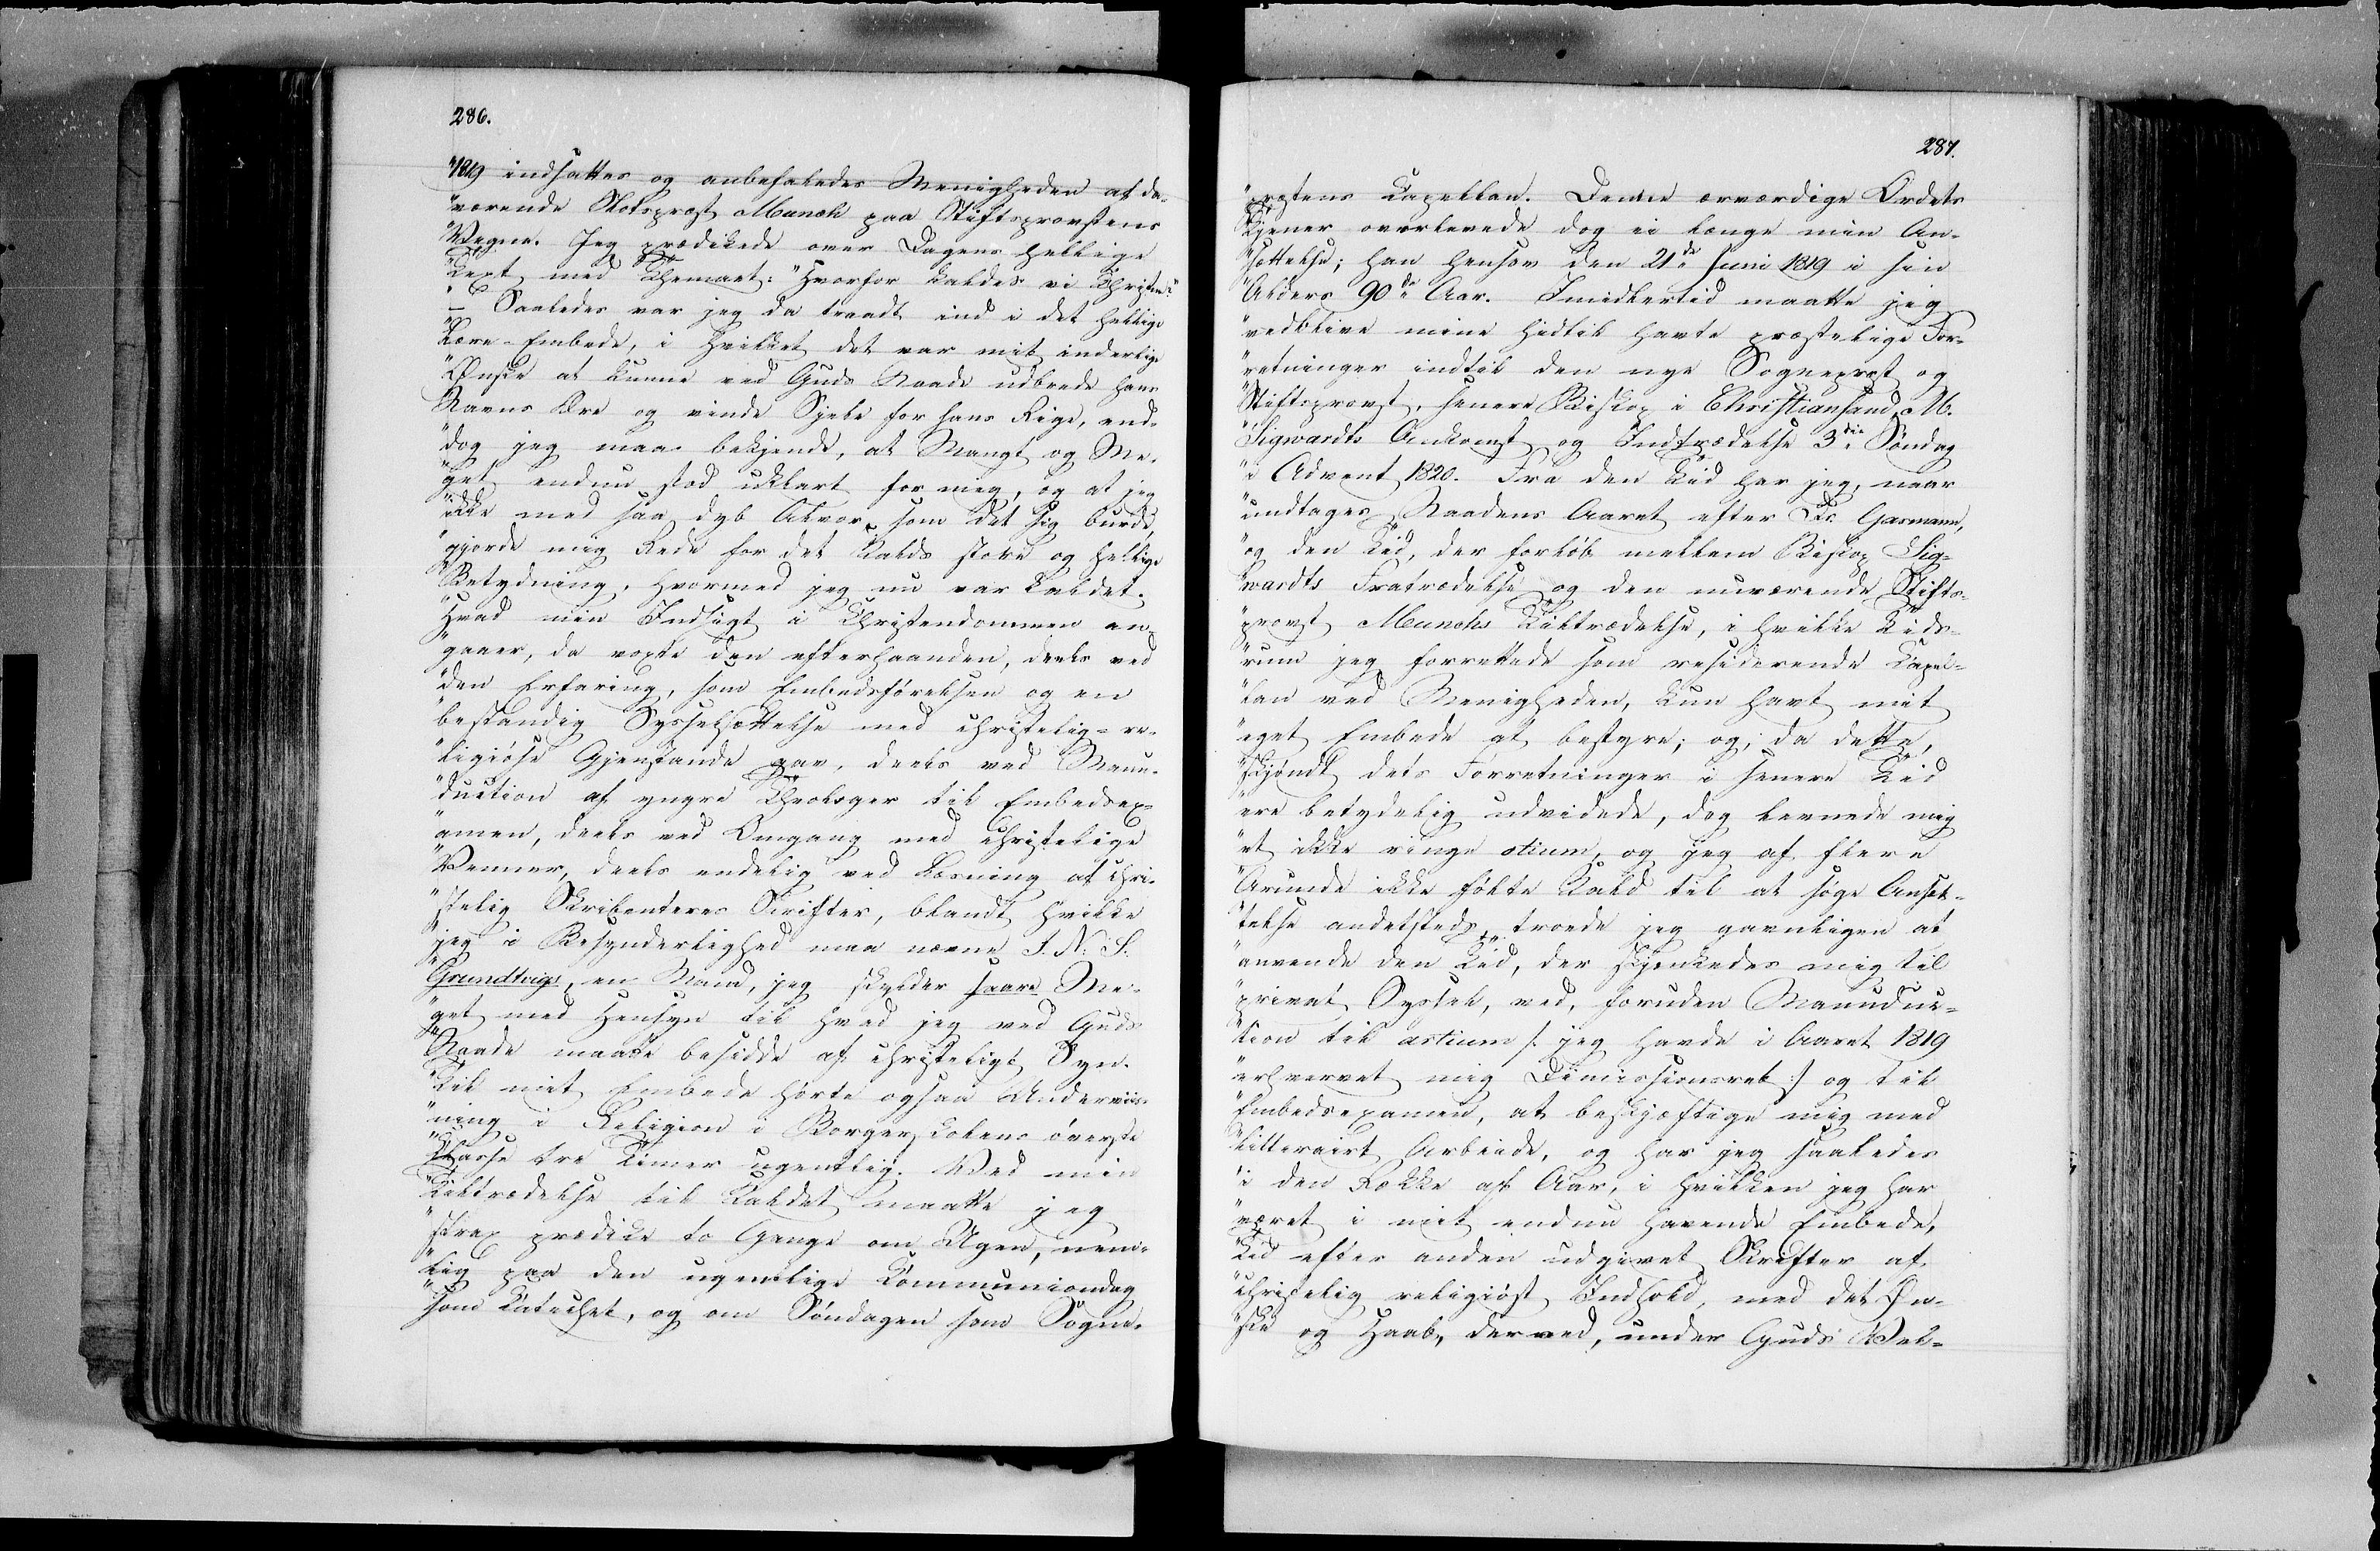 286.
"1819 indsattes og anbefaledes Menigheden af da-
"værende Slotspræst Munch paa Stiftsprovstens
"Vegne. Jeg prædikede over Dagens hellige
"Text med Themaet: "Hvorfor kaldes vi Christne?"
"– Saaledes var jeg da traadt ind i det hellige
"Lære-Embede, i hvilket det var mit inderlige
"Ønske at kunne ved Guds Naade udbrede hans
"Navns Ære og vinde Sjele for hans Rige, end-
"dog jeg maa bekjende, at Mangt og Me-
"get endnu stod uklart for mig, og at jeg
"ikke med saa dyb Alvor, som det sig burde,
"gjorde mig Rede for det Kalds store og hellige
"Betydning, hvormed jeg nu var kaldet.
"Hvad min Indsigt i Christendommen an-
"gaaer, da voxte den efterhaanden, deels ved
"den Erfaring, som Embedsførelsen og en
"bestandig Sysselsættelse med christelig-re-
"ligiøse Gjenstande gav, deels ved Manu-
"duction af yngre Theologer til Embedsex-
"amen, deels ved Omgang med christelige
"Venner, deels endelig ved Læsning af chri-
"stelig Skribenteres Skrifter, blandt hvilke
"jeg i Besynderlighed maa nævne N. F. S.
"Grundtvigs, en Mand, jeg skylder saare Me-
"get med Hensyn til hvad jeg ved Guds
"Naade maatte besidde af christeligt Syn.
"Til mit Embede hørte ogsaa Underviis-
"ning i Religion i Borgerskolens øverste
"Klasse tre Timer ugentlig. Ved min
"Tiltrædelse til Kaldet maatte jeg
"strax prædike to Gange om Ugen, nem-
"lig paa den ugentlige Communiondag
"som Catechet, og om Søndagen som Sogne-
287.
"præstens Capellan. Denne ærværdige Ordets
"Tjener overlevede dog ei længe min An-
"sættelse; han hensov den 21de Juni 1819 i sin
"Alders 90de Aar. Imidlertid maatte jeg
"vedblive mine hidtil havte præstelige For-
"retninger indtil den nye Sognepræst og
"Stiftsprovst, senere Biskop i Christiansand, M.
"Sigwardts Ankomst og Indtrædelse 3die Søndag
"i Advent 1820. Fra den Tid har jeg, naar
"undtages Naadens Aaret efter Dr. Garmann,
"og den Tid, der forløb mellem Biskop Sig-
"wardts Fratrædelse og den nuværende Stifts-
"provst Munchs Tiltrædelse, i hvilke Tids-
"rum jeg forrettede som residerende Capel-
"lan ved Menigheden, kun havt mit
"eget Embede at bestyre; og, da dette,
"skjøndt dets Forretninger i senere Tid
"ere betydelig udvidede, dog levnede mig
"et ikke ringe otium, og jeg af flere
"Grunde ikke følte Kald til at søge Ansæt-
"telse andetsteds, troede jeg gavnligen at
"anvende den Tid, der skjenkedes mig til
"privat Syssel, ved, foruden Manuduc-
"tion til artium /: jeg havde i Aaret 1819
"erhvervet mig Dimissionsret :/ og til
"Embedsexamen, at beskjæftige mig med
"litterairt Arbeide, og har jeg saaledes
"i den Række af Aar, i hvilken jeg har
"været i mit endnu havende Embede,
"Tid efter anden udgivet Skrifter af
"christelig religiøst Indhold, med det Øn-
"ske og Haab, derved, under Guds Vel-